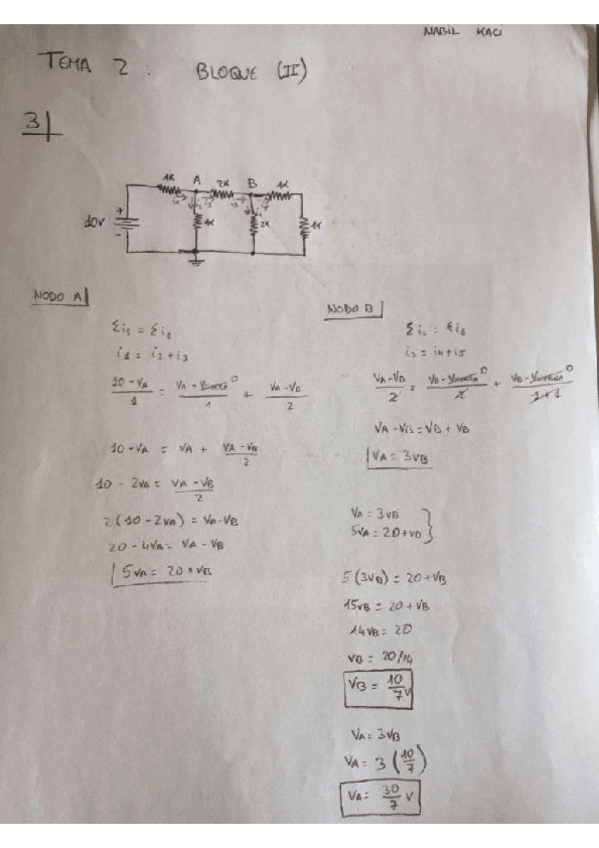 NABIL KACI
TEMA 2 : BLOQUE (II)
3|
1K A 2K B 1K
10V + - 1K 2K 1K
NODO A|
Σi₁ = Σi₂
i1 = i2 + i3
10 - VA / 1 = VA - 0 / 1 + VA - VB / 2
10 - VA = VA + VA - VB / 2
10 - 2VA = VA - VB / 2
2(10 - 2VA) = VA - VB
20 - 4VA = VA - VB
5VA = 20 + VB
NODO B|
Σi₁ = Σi₂
i3 = i4 + i5
VA - VB / 2 = VB - 0 / 2 + VB - 0 / 1+1
VA - VB = VB + VB
VA = 3VB
VA = 3VB
5VA = 20 + VB }
5(3VB) = 20 + VB
15VB = 20 + VB
14VB = 20
VB = 20/14
VB = 10/7 V
VA = 3VB
VA = 3 (10/7)
VA = 30/7 V